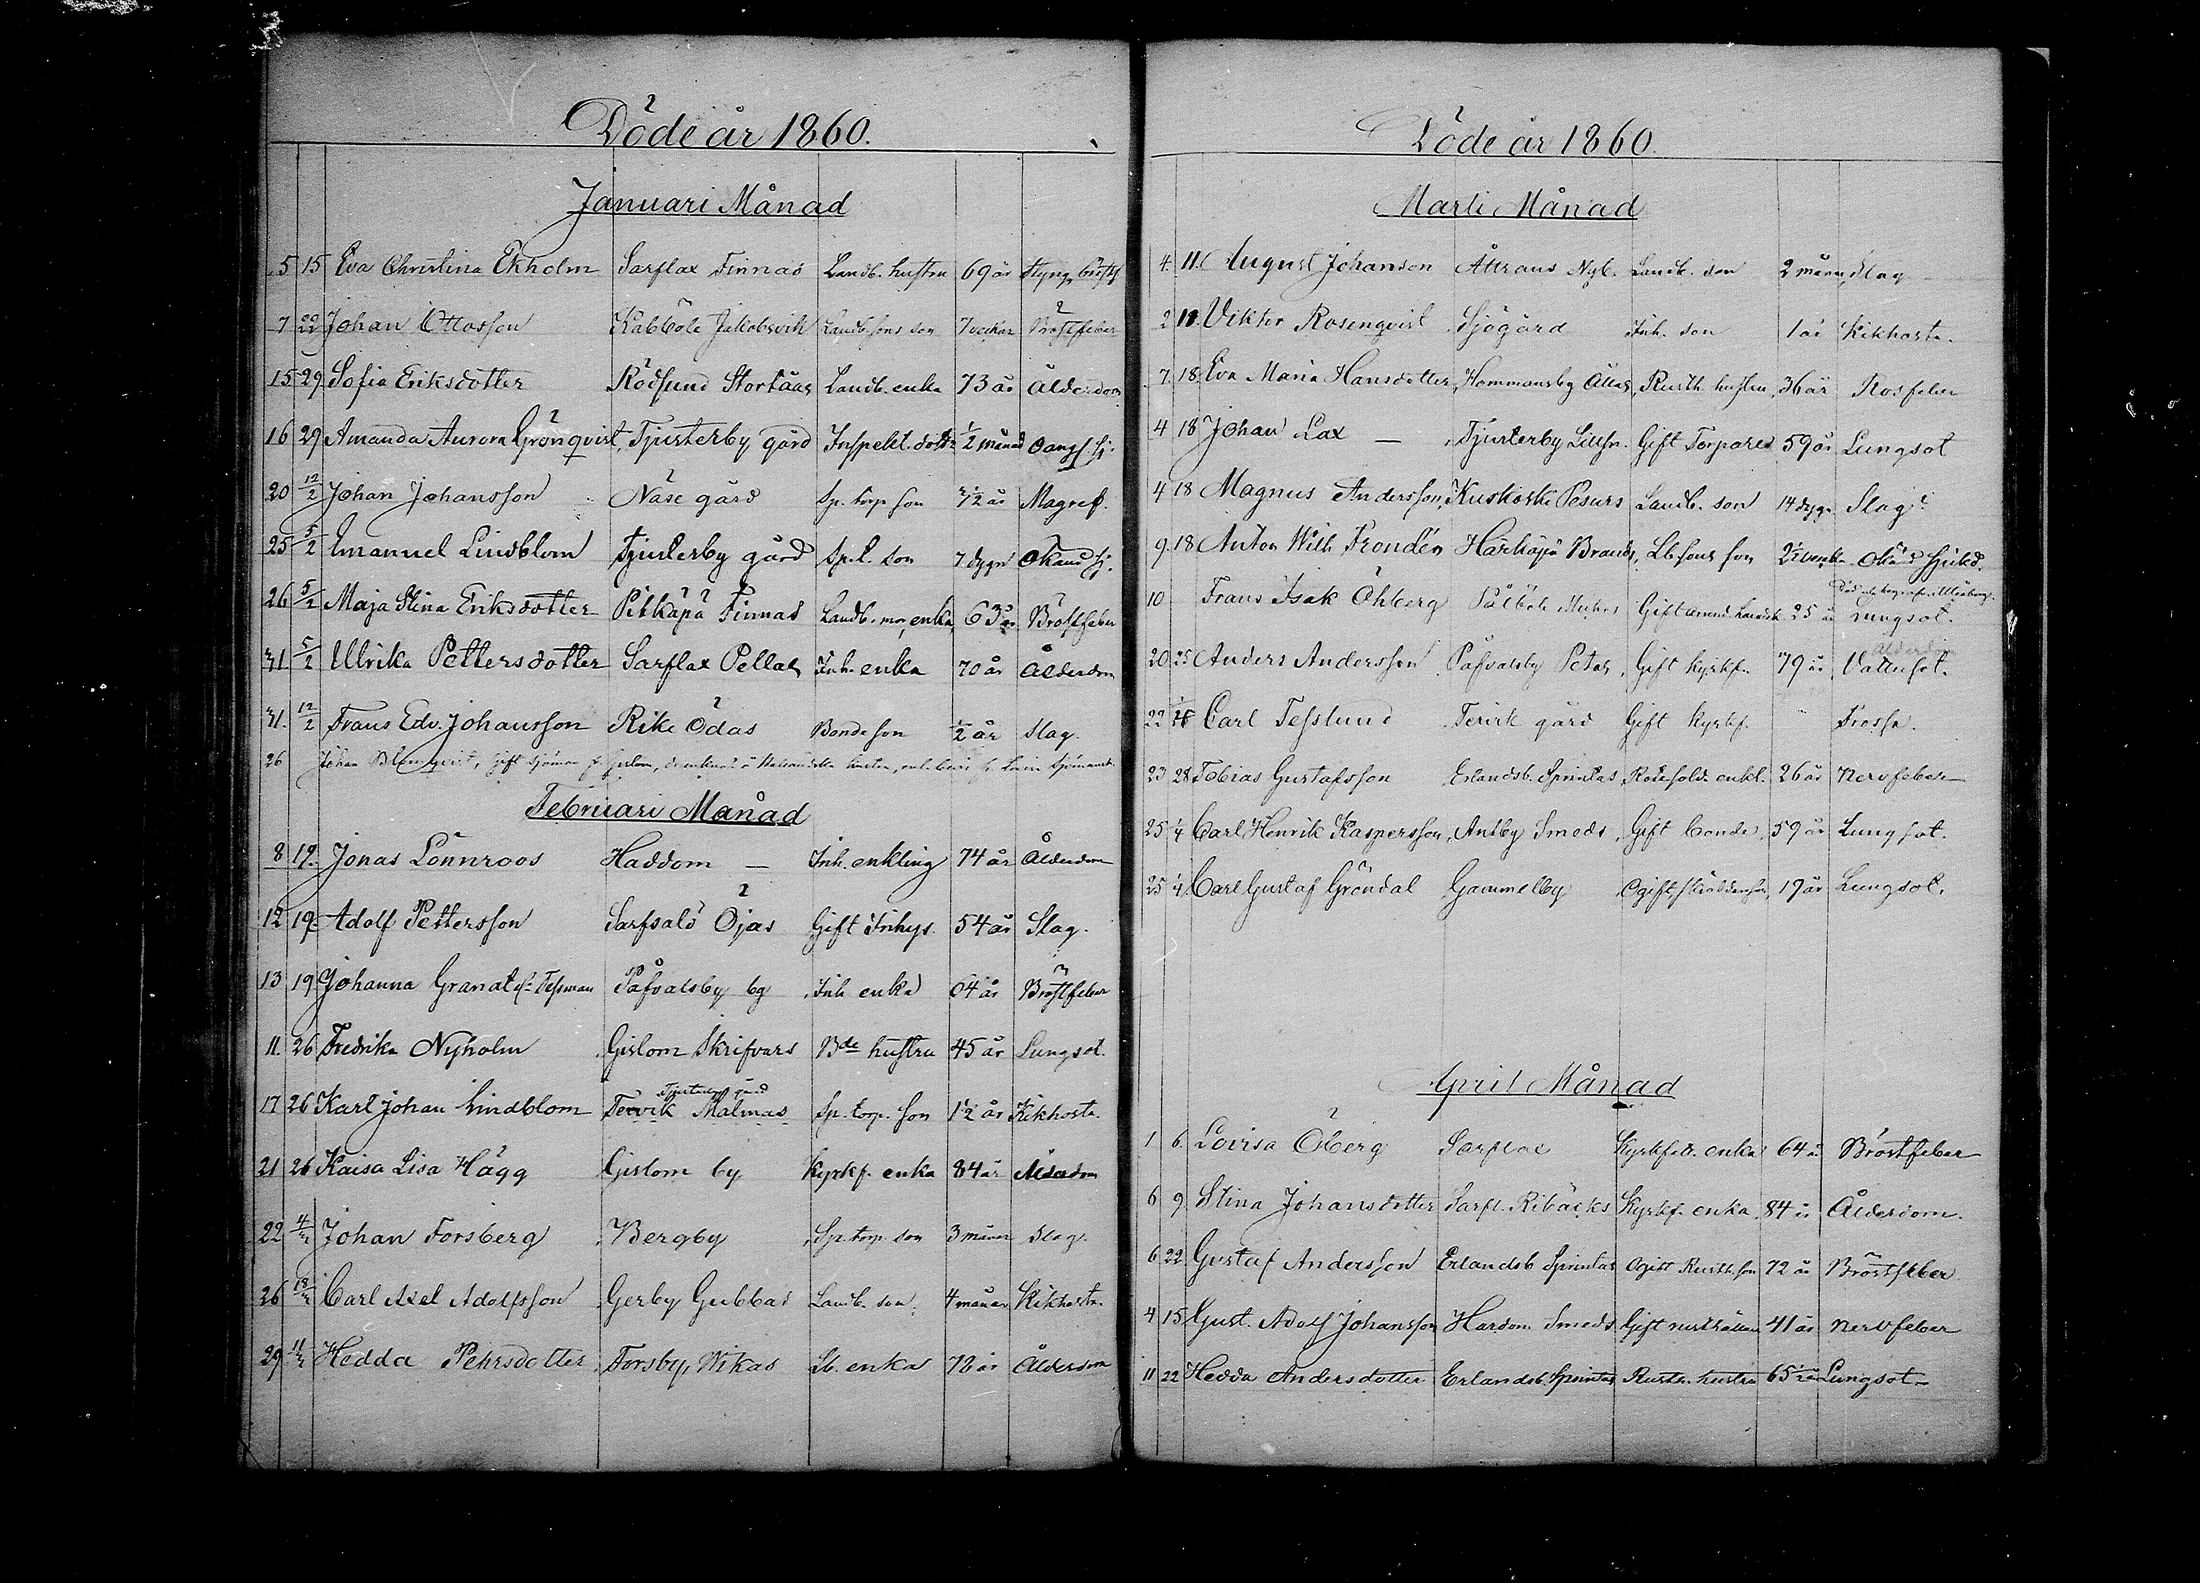 Döde år 1860.
Januari Månad
5 15 Eva Christina Ekholm Sarflax Finnas Landb. hustru 69 år
7 22 Johan Ottosson Kabböle Jakobsvik Landb.sons son 7 veckor Bröstfeber
15 29 Sofia Eriksdotter Rödsund Stortäas Landb. enka 73 år Ålderdom
16 29 Amanda Aurora Grönqvist, Tjusterby gård Inspekt. dottr 1/2 månad
20 12/2 Johan Johansson Näse gård Sp. torp son 1/2 år Magref.
25 5/2 Emanuel Lindblom Tjusterby gård Sp.t. son 7 dygn Okänd sj.
26 5/2 Maja Stina Eriksdotter Pitkäpä Finnas Landb. mor, enka, 63 år Bröstfeber
31 5/2 Ulrika Pettersdotter Sarflax Pellas Inh. enka 70 år Ålderdom
31. 12/2 Frans Edv. Johansson Rike Ödas Bondeson 1/2 år Slag.
26 Johan Blomqvist, gift sjöman fr Gislom, drunknad
Februari Månad
8 19. Jonas Lönnroos Haddom — Inh. enkling 74 år Ålderdom
12 19 Adolf Pettersson Sarfsalö Öjas Gift Inhys. 54 år Slag.
13 19 Johanna Granat f. Tessman Påfvalsby by Inh enka 64 år Bröstfeber
11. 26 Fredrika Nyholm Gislom Skrifvars Bde hustru 45 år Lungsot.
Tjusterby gård
17 26 Karl Johan Lindblom Tervik Malmas Sp. torp. son 1 1/2 år Kikhosta
21 26 Kaisa Lisa Hägg Gislom by Kyrkf. enka 84 år Ålderdom
22 4/3 Johan Forsberg Bergby Sp. torp. son 3 måner Slag.
26 18/3 Carl Axel Adolfsson Gerby Gubbas Landb. son. 4 måner Kikhosta.
29 11/3 Hedda Pehrsdotter Forsby, Nikas Lb. enka 78 år Ålderdom
Döde år 1860.
Marti Månad
4. 11. August Johanson Nyb. Landb. son 2 måner, Slag
2 18. Viktor Rosenqvist Sjögård Inh. son 1 år Kikhosta.
7. 18. Eva Maria Hansdotter, Hommansby Rusth. hustru, 36 år
4 18 Johan Lax — Tjusterby Gift Torpare 59 år Lungsot
4 18 Magnus Andersson, Kuskoski Pesurs Landb. son 14 dygn Slag.
9. 18 Anton Wilh Frondén Härkäpä Brands, Lb sons son 2 1/2 vecka Okänd sjukd.
10 Frans Isak Öhberg Gift 25 år Lungsot.
Ålderdom
20 25 Anders Andersson Påfvalsby Petas, Gift Kyrkf. 79 år, Vattusot.
22 Carl Tesslund Tervik gård Gift kyrkf. " Frossa.
23 28 Tobias Gustafsson Erlandsb. Sprintas, enkl. 26 år Nervfeber
25 1/4 Carl Henrik Kaspersson, Antby Smeds, Gift bonde, 59 år Lungsot.
25 1/4 Carl Gustaf Gröndal Gammelby Ogift, 19 år Lungsot.
April Månad
1 6. Lovisa Öberg Sarflax Kyrkfatt. enka 64 år Bröstfeber
6 9. Stina Johansdotter Sarfl. Ribäcks Kyrkf. enka, 84 år Ålderdom.
6 22 Gustaf Andersson Erlandsb Sprintas Ogift Rusth. son 72 år Bröstfeber
4 15 Gust. Adolf Johansson Hardom Smeds Gift rusthållare 41 år Nervfeber
11 22 Hedda Andersdotter Erlandsb. Sprintas Rusth. hustru 65 1/2 år Lungsot